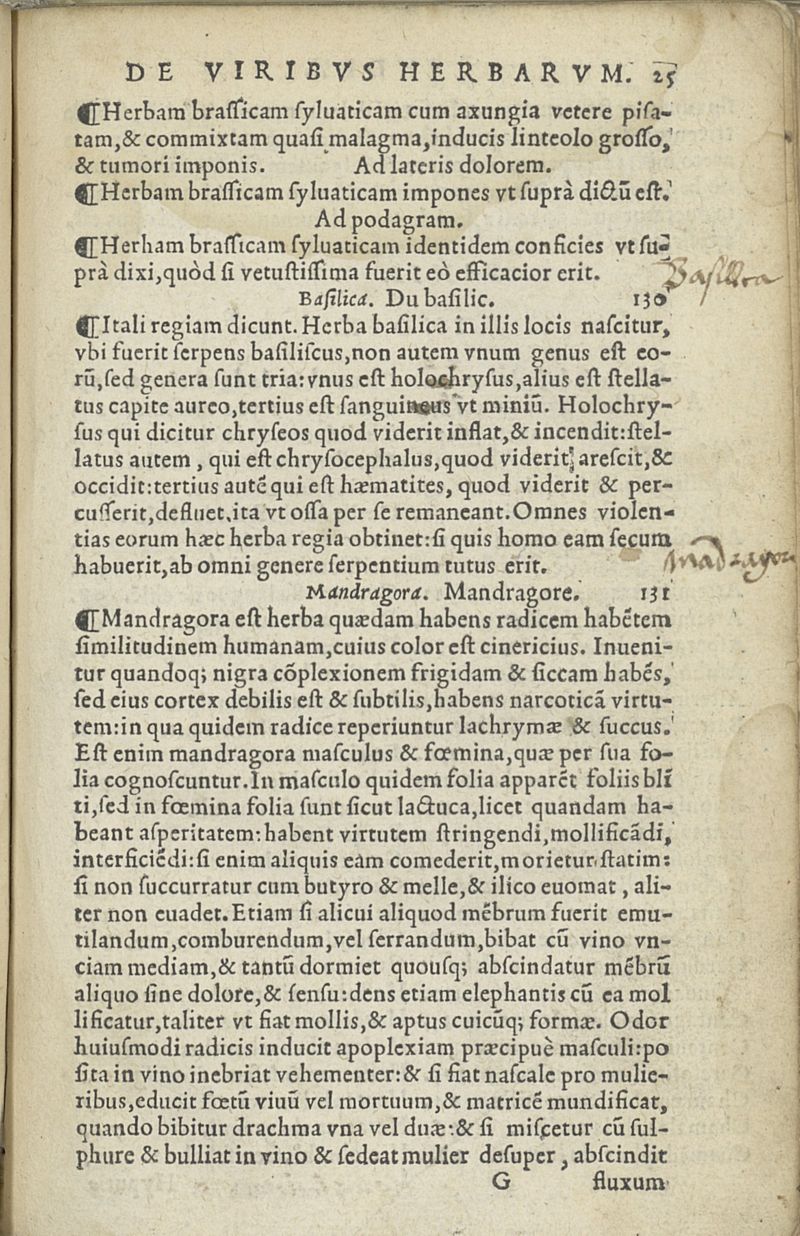 DE VIRIBVS HERBARVM. 25
¶Herbam braſſicam ſyluaticam cum axungia vetere piſa-
tam,& commixtam quaſi malagma,inducis linteolo groſſo,
& tumori imponis. Ad lateris dolorem.
¶Herbam braſſicam ſyluaticam impones vt ſuprà dictũ eſt.
Ad podagram.
¶Herham braſſicam ſyluaticam identidem conficies vt ſu-
prà dixi,quòd ſi vetuſtiſſima fuerit eò efficacior erit.
Baſilica. Du baſilic. 130
¶Itali regiam dicunt. Herba baſilica in illis locis naſcitur,
vbi fuerit ſerpens baſiliſcus,non autem vnum genus eſt eo-
rũ,ſed genera ſunt tria:vnus eſt holochryſus,alius eſt ſtella-
tus capite aureo,tertius eſt ſanguineus vt miniũ. Holochry-
ſus qui dicitur chryſeos quod viderit inflat,& incendit:ſtel-
latus autem , qui eſt chryſocephalus,quod viderit, areſcit,&
occidit:tertius autẽ qui eſt hæmatites, quod viderit & per-
cuſſerit,defluet,ita vt oſſa per ſe remaneant.Omnes violen-
tias eorum hæc herba regia obtinet:ſi quis homo eam ſecum
habuerit,ab omni genere ſerpentium tutus erit.
Mandragora. Mandragore. 131
¶Mandragora eſt herba quædam habens radicem habẽtem
ſimilitudinem humanam,cuius color eſt cinericius. Inueni-
tur quandoq; nigra cõplexionem frigidam & ſiccam habẽs,
ſed eius cortex debilis eſt & ſubtilis,habens narcoticã virtu-
tem:in qua quidem radice reperiuntur lachrymæ & ſuccus.
Eſt enim mandragora maſculus & fœmina,quæ per ſua fo-
lia cognoſcuntur.In maſculo quidem folia apparẽt foliis blĩ
ti,ſed in fœmina folia ſunt ſicut lactuca,licet quandam ha-
beant aſperitatem:habent virtutem ſtringendi,mollificãdi,
interficiẽdi:ſi enim aliquis eam comederit,morietur ſtatim:
ſi non ſuccurratur cum butyro & melle,& ilico euomat , ali-
ter non euadet.Etiam ſi alicui aliquod mẽbrum fuerit emu-
tilandum,comburendum,vel ſerrandum,bibat cũ vino vn-
ciam mediam,& tantũ dormiet quouſq; abſcindatur mẽbrũ
aliquo ſine dolore,& ſenſu:dens etiam elephantis cũ ea mol
lificatur,taliter vt fiat mollis,& aptus cuicũq; formæ. Odor
huiuſmodi radicis inducit apoplexiam præcipuè maſculi:po
ſita in vino inebriat vehementer:& ſi fiat naſcale pro mulie-
ribus,educit fœtũ viuũ vel mortuum,& matricẽ mundificat,
quando bibitur drachma vna vel duæ:& ſi miſcetur cũ ſul-
phure & bulliat in vino & ſedeat mulier deſuper , abſcindit
G fluxum